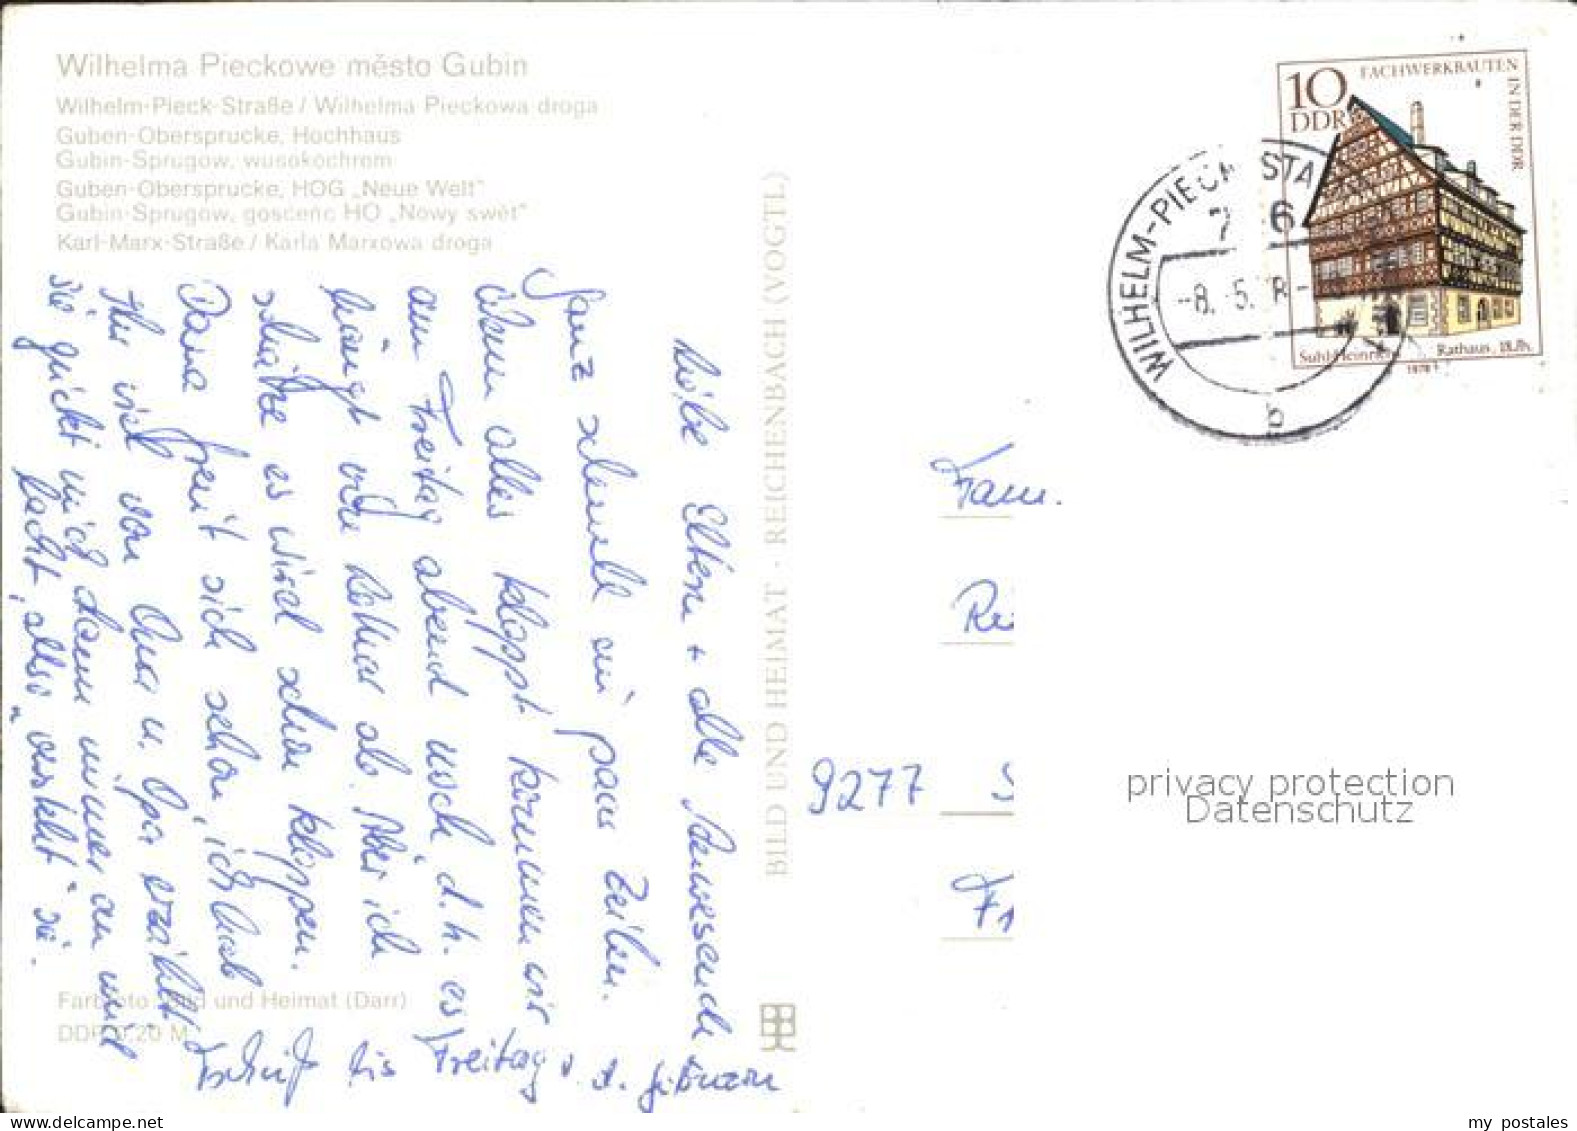 Wilhelma Pieckowe město Gubin
Wilhelm-Pieck-Straße / Wilhelma Pieckowa droga
Guben-Obersprucke, Hochhaus
Gubin-Sprugow, wusokochrom
Guben-Obersprucke, HOG „Neue Welt"
Gubin-Sprugow, gosceńc HO „Nowy swět"
Karl-Marx-Straße / Karla Marxowa droga
Liebe Eltern + alle Anwesenden
Ganz schnell ein paar Zeilen.
Wenn alles klappt kommen wir
am Freitag abend noch, d. h. es
hängt von ab. Aber ich
schätze es wird schon klappen.
Dana freut sich schon, ich hab
ihr viel von Oma u. Opa erzählt
sie guckt mich dann immer an und
lacht, also „versteht" sie.
Tschüß bis Freitag
BILD UND HEIMAT · REICHENBACH (VOGTL)
Farbfoto: Bild und Heimat (Darr)
DDR 0,20 M
10
DDR
FACHWERKBAUTEN
IN DER DDR
Suhl-Heinrichs Rathaus, 18. Jh.
1978
WILHELM-PIECK-STA
7 6
-8.-5. 8-
b
Fam.
Rei
9277
Fr
privacy protection
Datenschutz
my postales